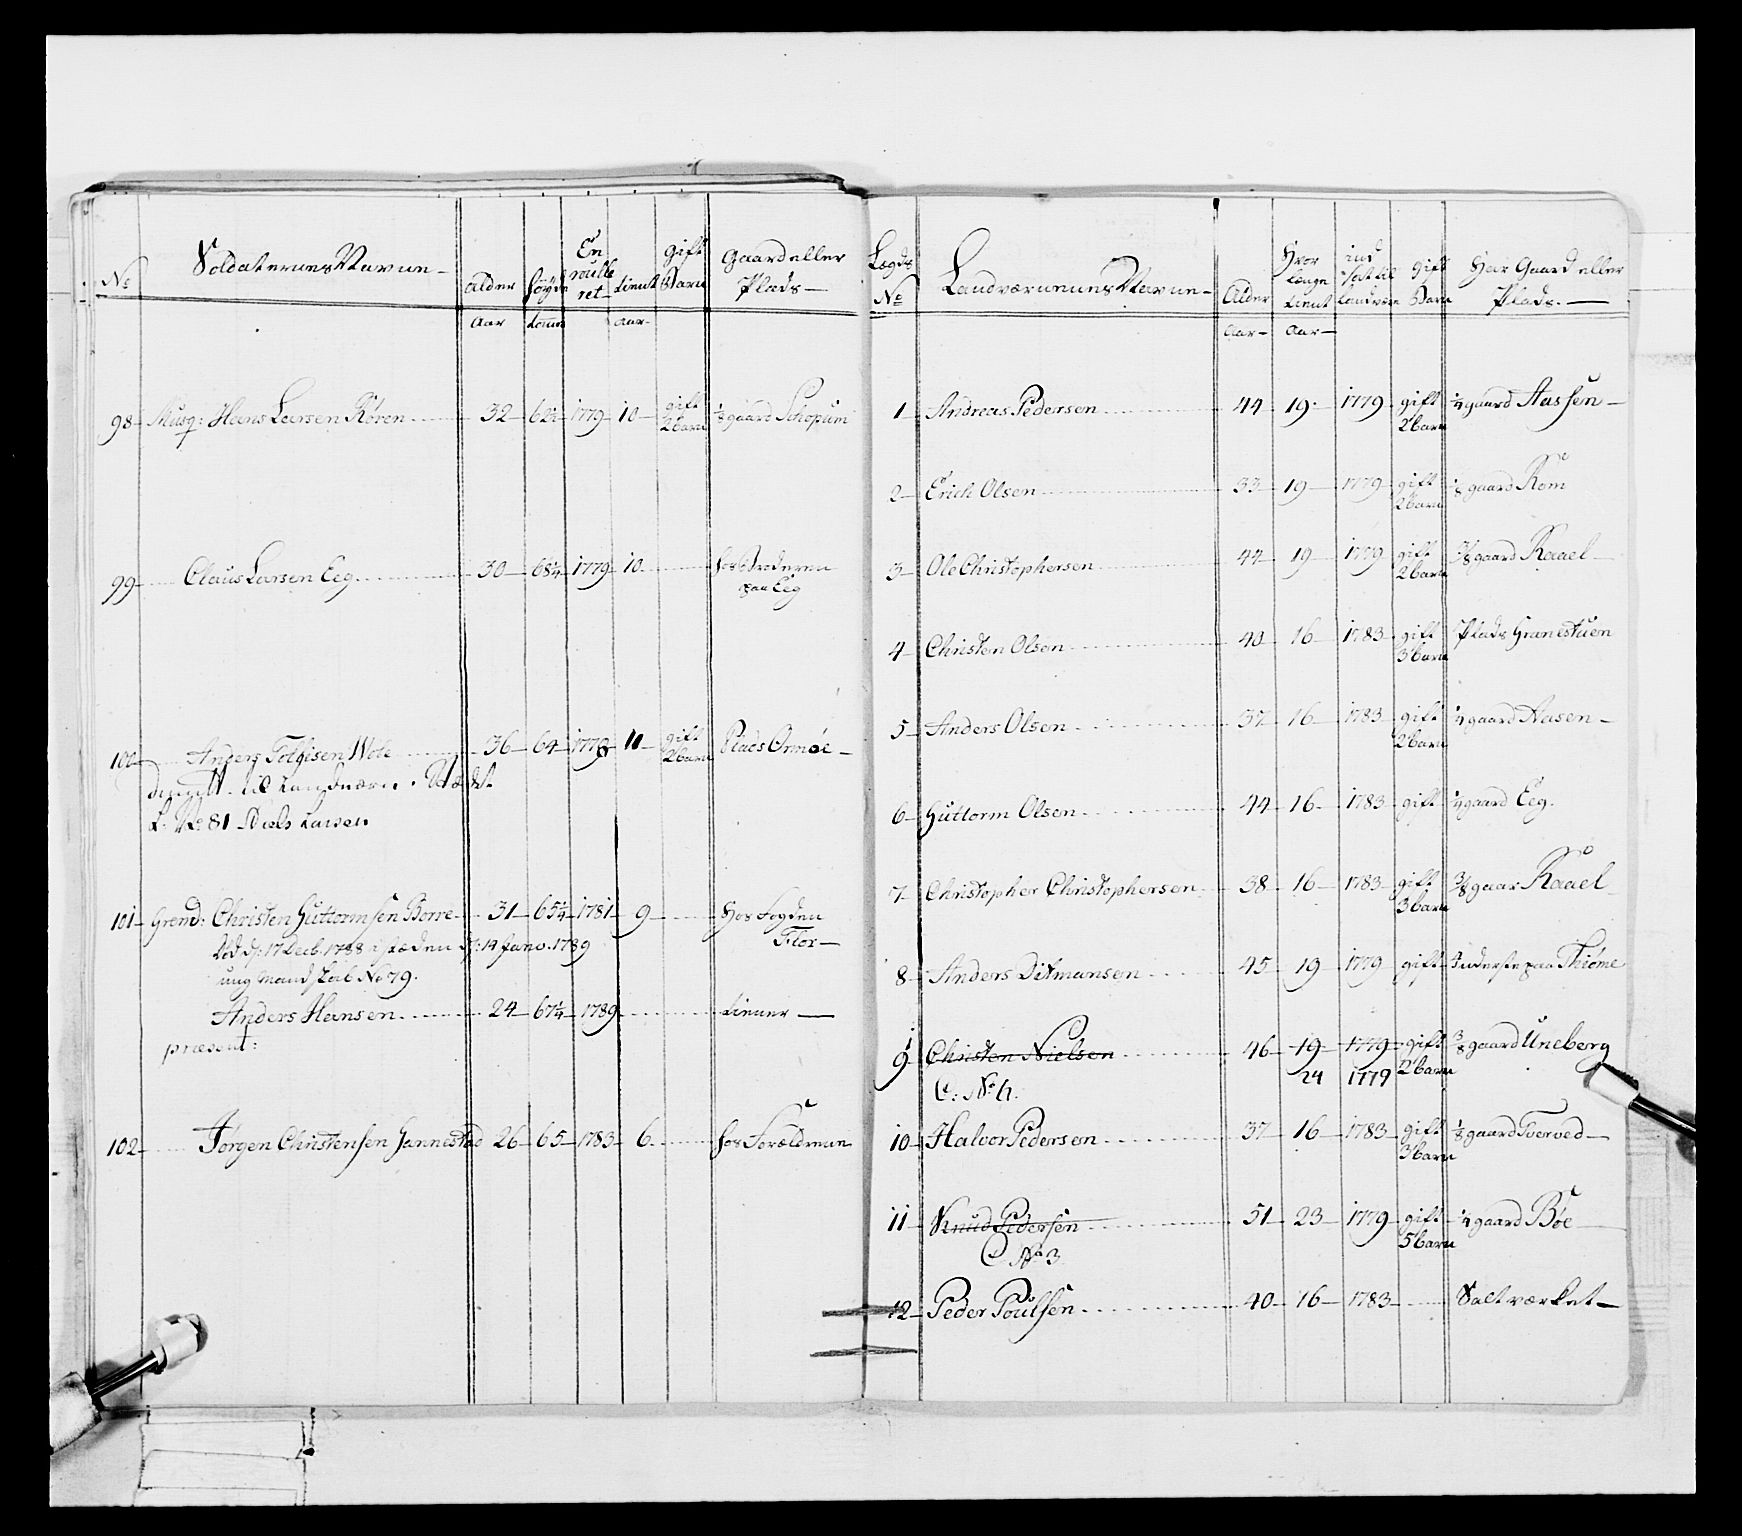 No Soldaternes Navne Alder Høyde Enroulleret tient gift Barn Gaard eller Plads
Aar tomr aar
98 Musq: Hans Larsen Røren 32 62½ 1779 10 gift 2 barn ⅛ gaard Schopum
99 Claus Larsen Eeg 30 68¼ 1779 10 hos Broderen
paa Eeg
100 Anders 36 64 1778 11 gift 2 barn Plads Ormøe
til Landværn
L: No: 81 Niels Larsen
101 Grend: Christen Guttormsen Borre 31 65¼ 1781 9 Hos Fogden
Flor
Død d: 17 Decb. 1788 i stæden d: 14 Janv. 1789
ung Mand No 79.
Anders Hansen 24 67¼ 1789 tiener
præsent:
102 Jørgen Christensen Hannestad 26 65 1783 6 hos Forældrene
Lægds No Landværnenes Navne Alder Hvor længe tient ind sat til Landværn gift Barn Har Gaard eller Plads
Aar Aar
1 Andreas Pedersen 44 19 1779 gift 2 barn ¼ gaard Aassen
2 Erich Olsen 33 19 1779 gift 2 barn ⅛ gaard Rom
3 Ole Christophersen 44 19 1779 gift 2 barn ⅜ gaard Raael
4 Christen Olsen 40 16 1783 gift 3 barn Plads Granestuen
5 Anders Olsen 37 16 1783 gift 2 barn ¼ gaard Aasen
6 Guttorm Olsen 44 16 1783 gift ¼ gaard Eeg
7 Christopher Christophersen 38 16 1783 gift 3 barn ⅜ gaar Raael
8 Anders Ditmansen 45 19 1779 gift Inderste paa Thiøme
9 Christen Nielsen 46 19 1779 gift 2 barn ⅜ gaard Uneberg
C: No 4. 24 1779
10 Halvor Pedersen 37 16 1783 gift 3 barn ⅛ gaard Tverved
11 Knud Pedersen 51 23 1779 gift 5 barn ¼ gaard Bøe
C No 3
12 Peder Poulsen 40 16 1783 Saltværket